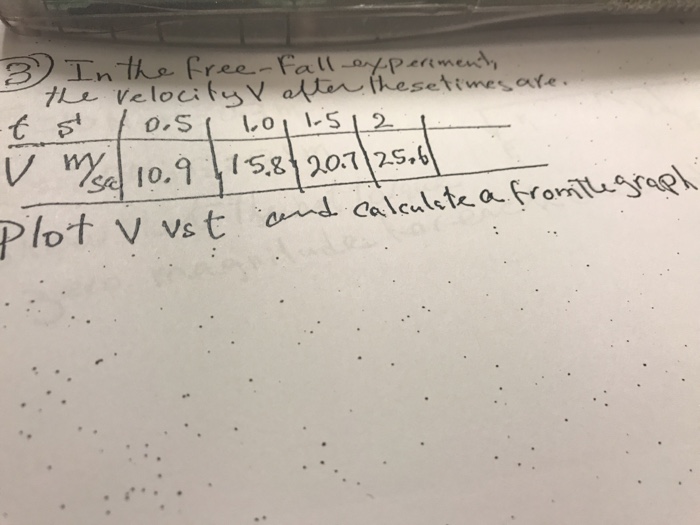 3) In the free-fall experiment,
the velocity V after these times are.
t st 0.5 1.0 1.5 2
V m/sec 10.9 15.8 20.7 25.6
Plot V vs t and calculate a from the graph